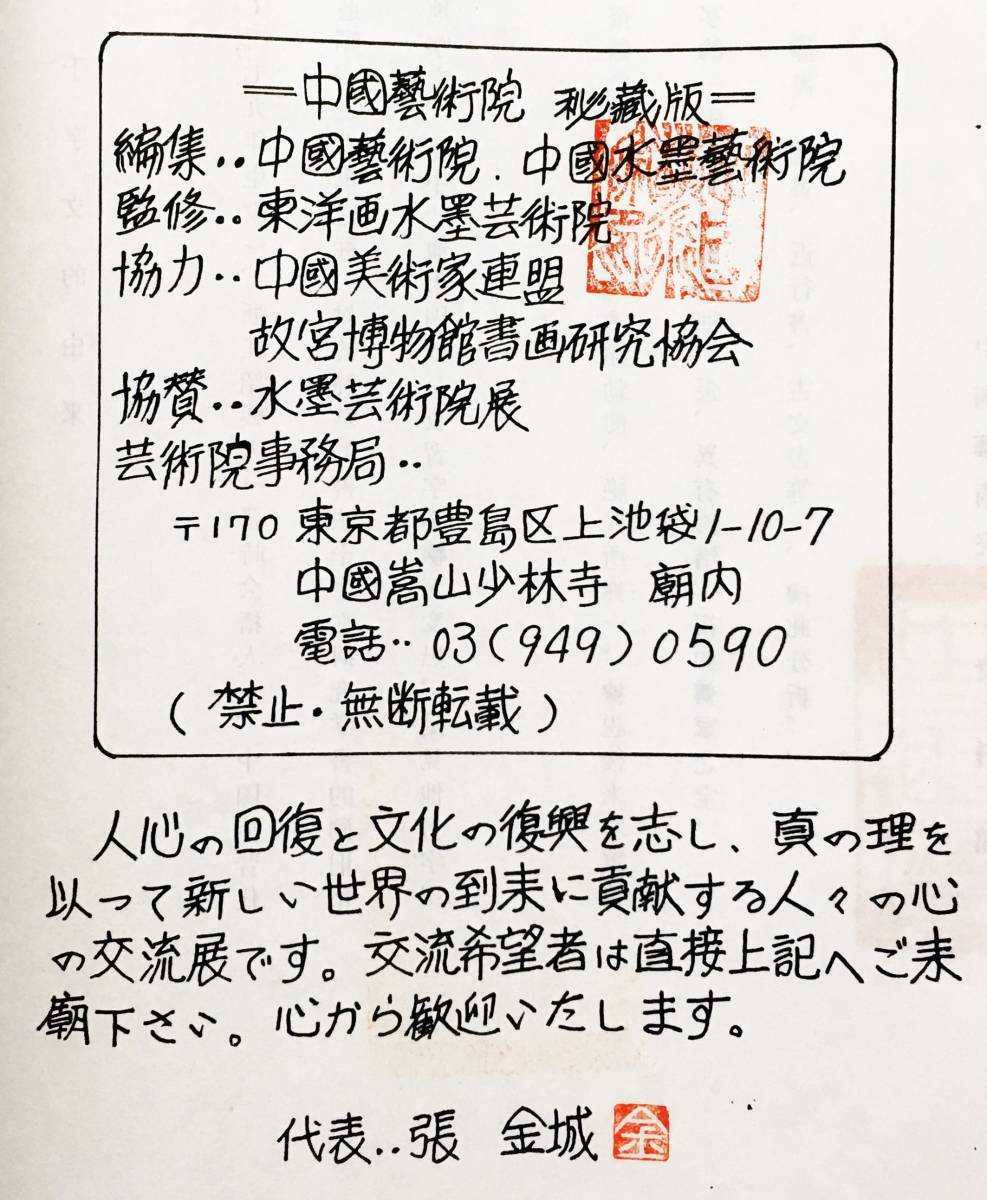 =中國藝術院 秘藏版=
編集‥中國藝術院.中國水墨藝術院
監修‥東洋画水墨芸術院
協力‥中國美術家連盟
故宮博物館書画研究協会
協賛‥水墨芸術院展
芸術院事務局‥
〒170 東京都豊島区上池袋1-10-7
中國嵩山少林寺 廟内
電話‥03(949)0590
(禁止・無断転載)
人心の回復と文化の復興を志し、真の理を
以って新しい世界の到来に貢献する人々の心
の交流展です。交流希望者は直接上記へご来
廟下さい。心から歓迎いたします。
代表‥張 金城